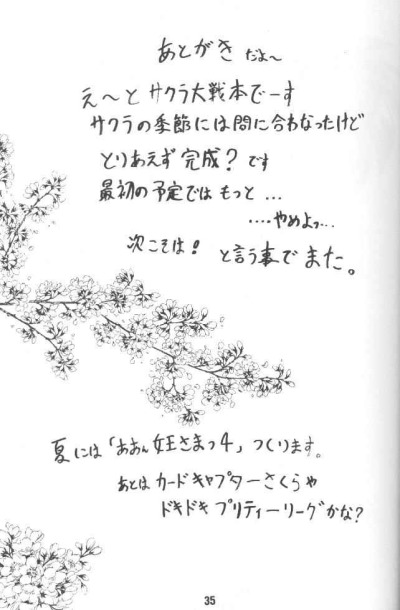 あとがき だよ〜
え〜と サクラ大戦本でーす
サクラの季節には間に合わなったけど
とりあえず完成？です
最初の予定では もっと …
‥‥やめよっ…
次こそは！ と言う事で また。
夏には「ああん女王さまっ4」つくります。
あとは カードキャプターさくらや
ドキドキ プリティーリーグかな？
35